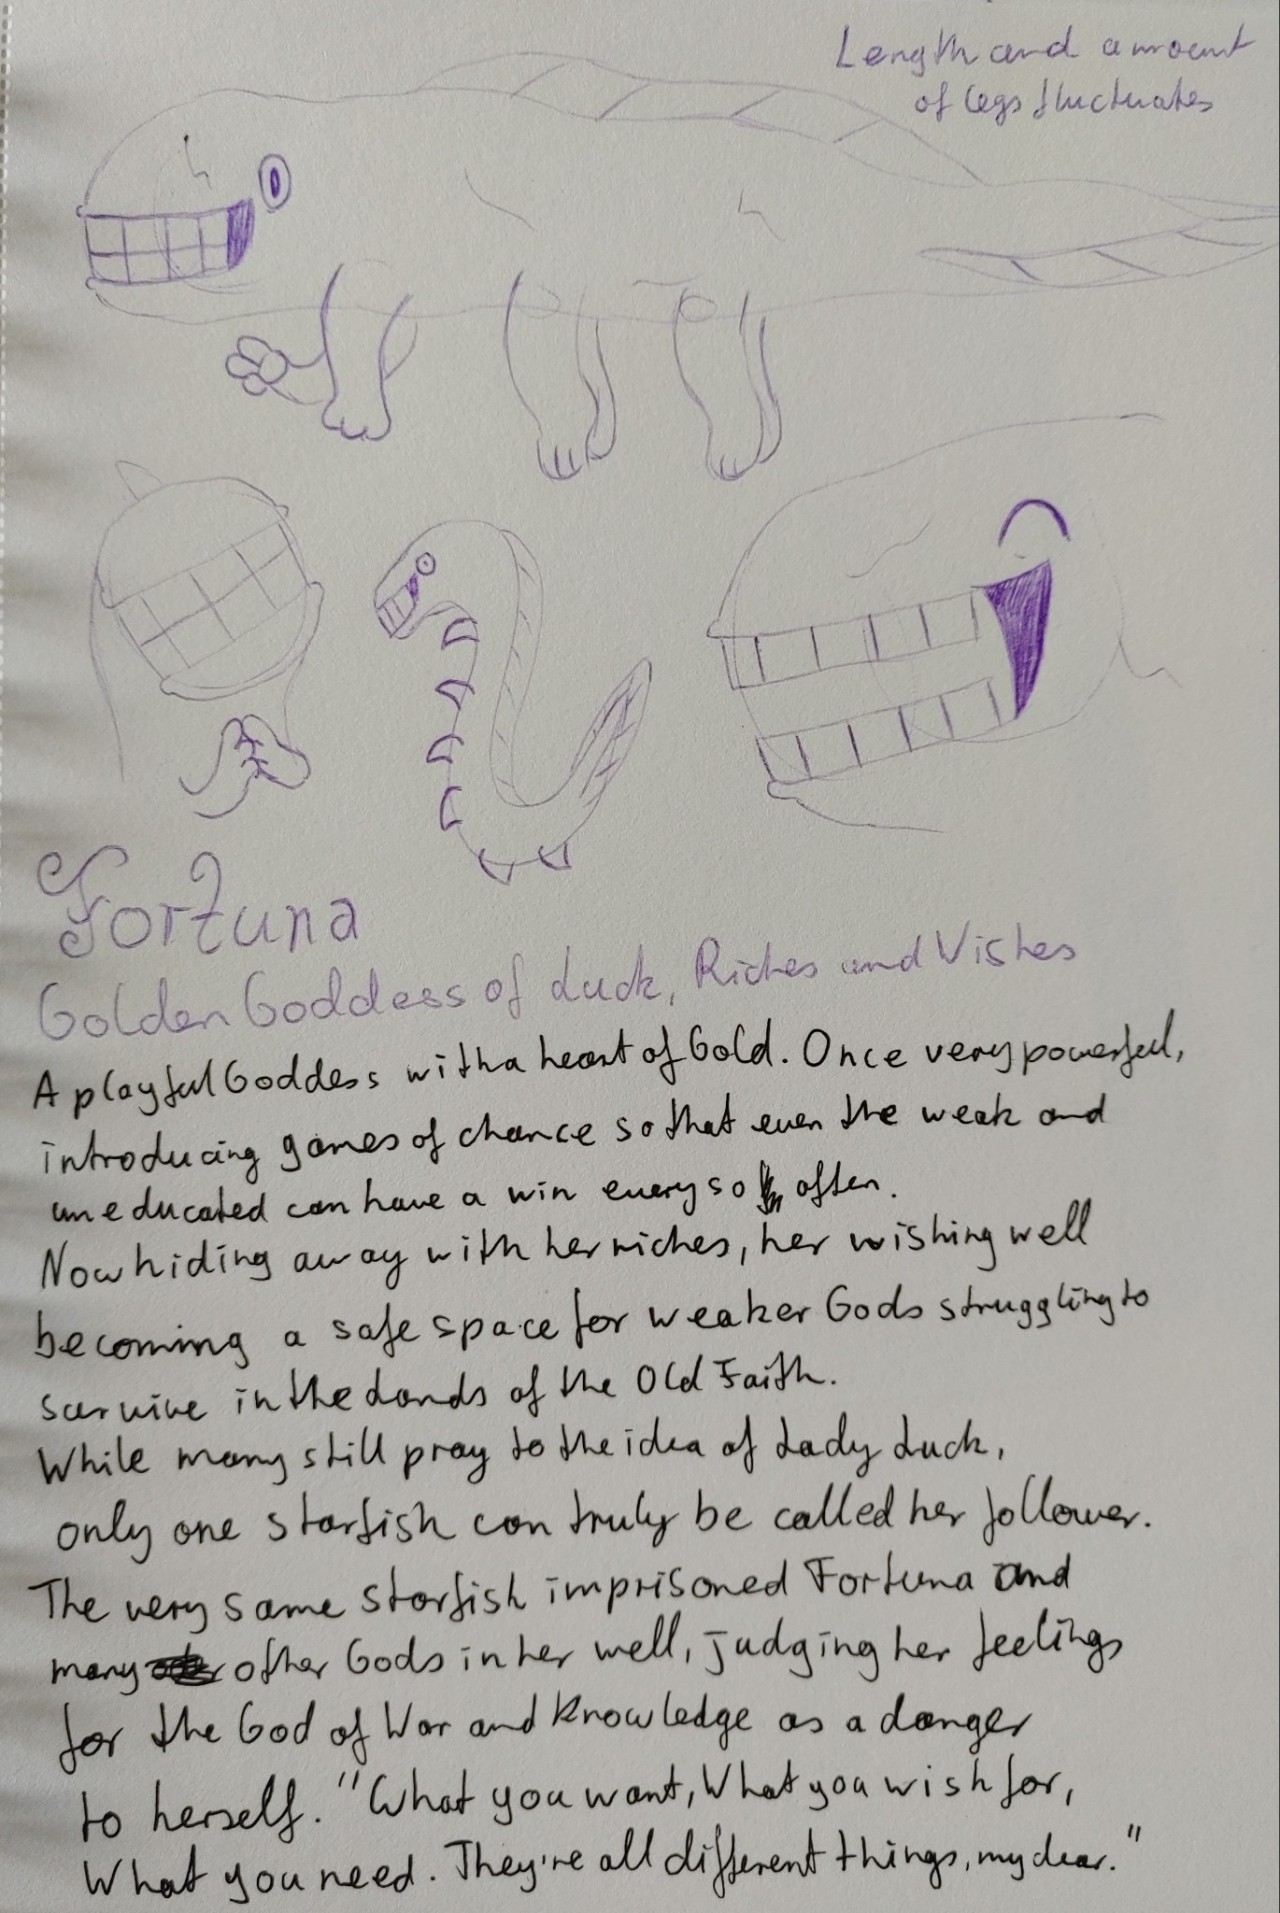 Length and amount
of legs fluctuates
Fortuna
Golden Goddess of Luck, Riches and Wishes
A playful Goddess with a heart of Gold. Once very powerful,
introducing games of chance so that even the weak and
uneducated can have a win every so often.
Now hiding away with her riches, her wishing well
becoming a safe space for weaker Gods struggling to
survive in the Lands of the Old Faith.
While many still pray to the idea of Lady Luck,
only one starfish can truly be called her follower.
The very same starfish imprisoned Fortuna and
many other Gods in her well, judging her feelings
for the God of War and Knowledge as a danger
to herself. "What you want, What you wish for,
What you need. They're all different things, my dear."